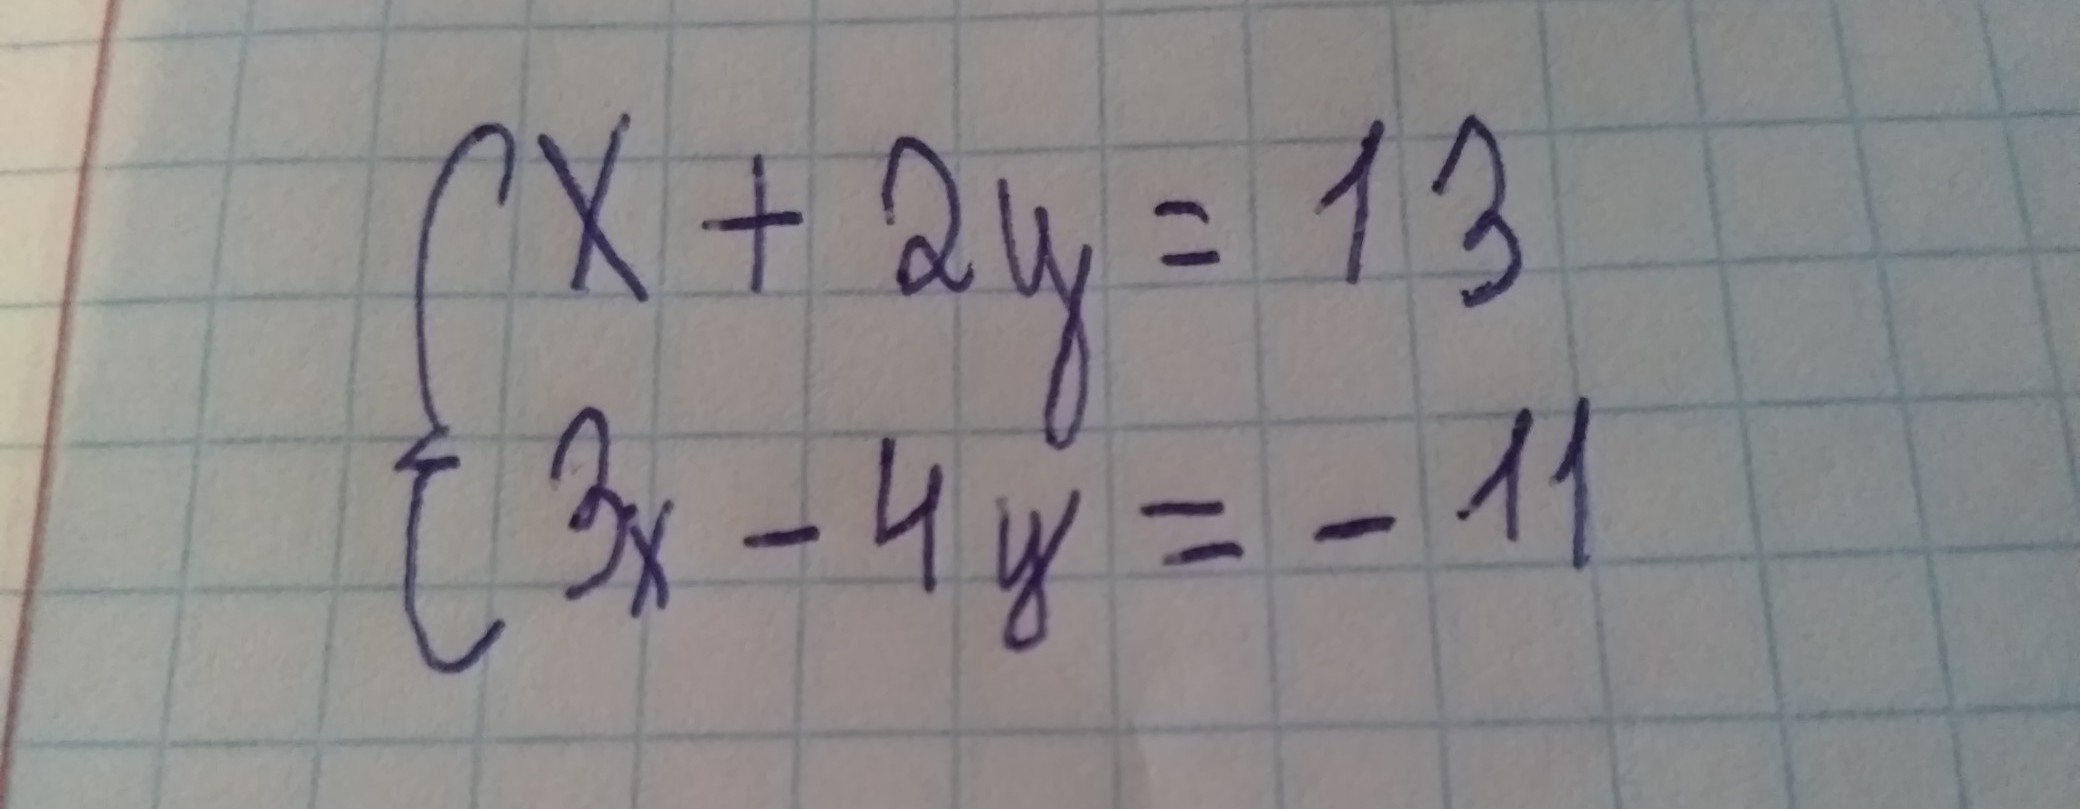 x + 2y = 13
3x - 4y = - 11